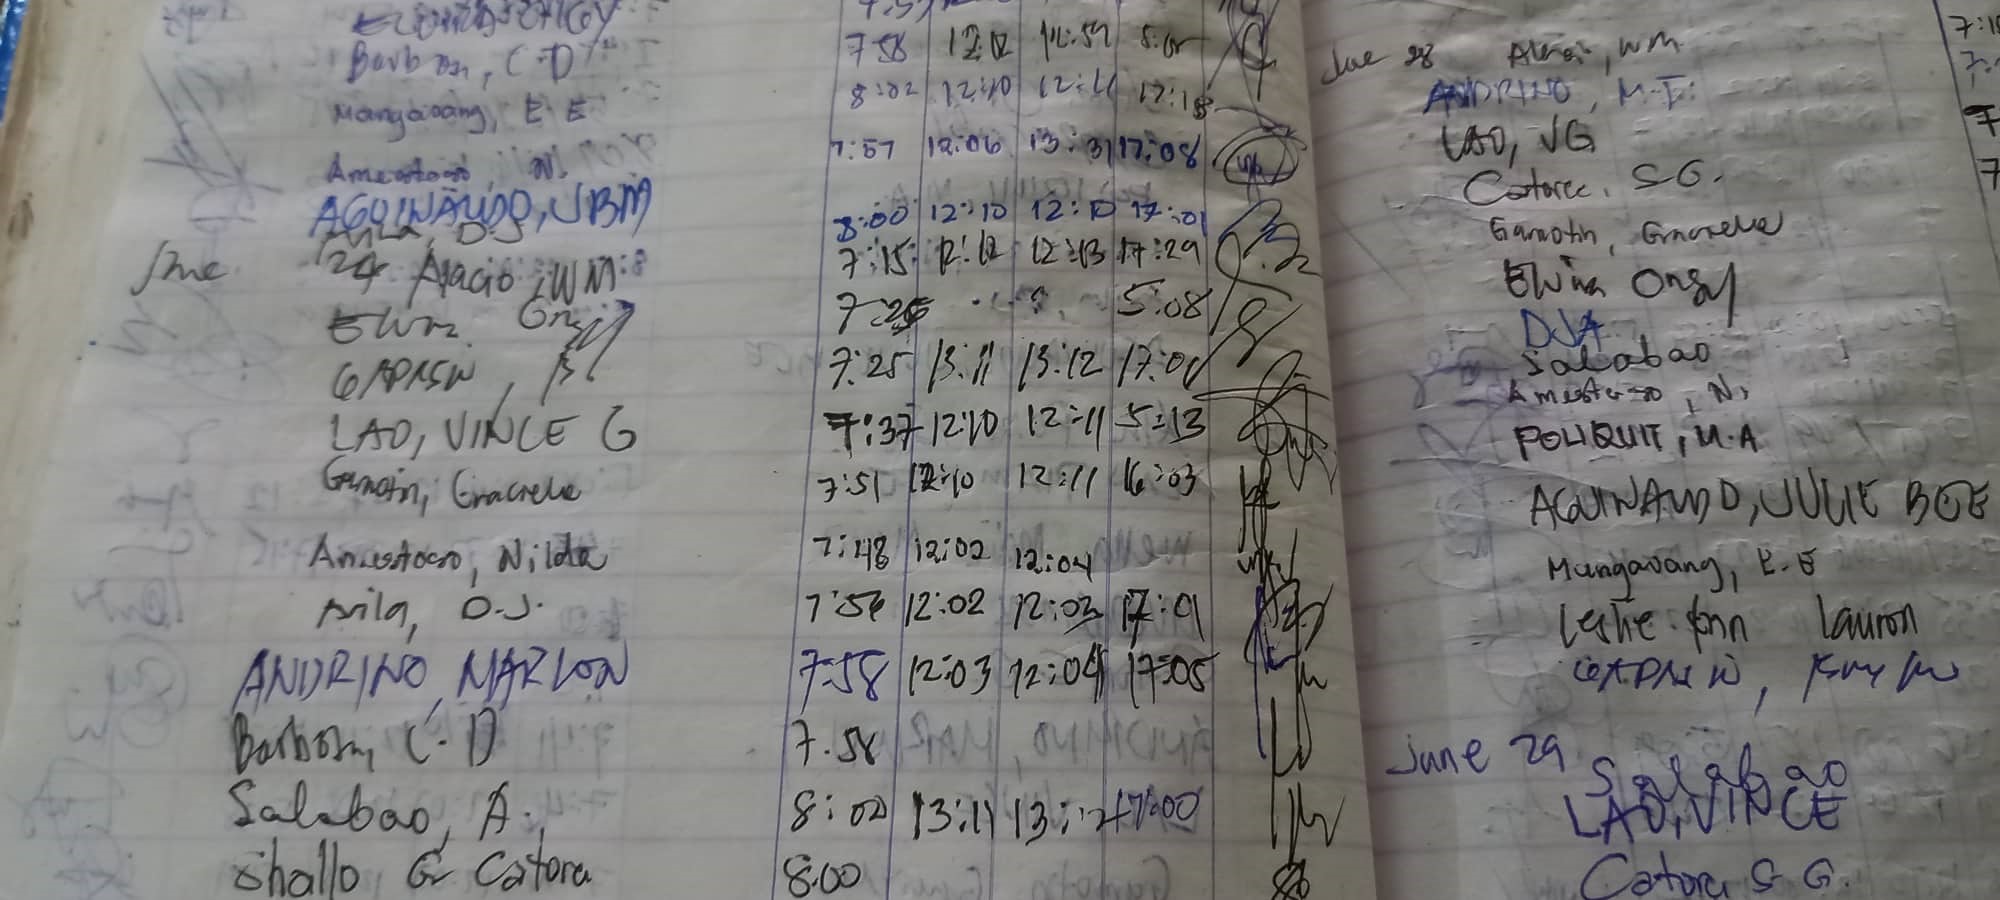 7:57
Barbon, C.D 7:58 12:12 12:59 5:01
Mangavang, E.E 8:02 12:10 12:11 17:18
Amestoso, N. 7:57 12:06 13:31 17:08
AGUINAUDO, JBM 8:00 12:10 12:10 17:01
Avila, D.J
June 24 Alacio, WM 7:15 12:12 12:13 17:29
Ewin Ongy 7:25 5:08
7:25 13:11 13:12 17:01
LAO, VINCE G 7:37 12:10 12:11 5:13
Gamotin, Gracielle 7:51 12:10 12:11 16:03
Amestoso, Nilda 7:48 12:02 12:04
Avila, D.J. 7:56 12:02 12:03 17:01
ANDRINO, MARLON 7:58 12:03 12:04 17:05
Barbon, C.D 7:58
Salabao, A. 8:00 13:11 13:12 17:00
Shallo G Catora 8:00
June 28 WM
ANDRINO, M.I.
LAO, VG
Catora, S G.
Gamotin, Gracielle
Elwin Ongy
DJA
Salabao
Amestoso, N.
POLIQUIT, M.A
AGUINAUDO, JULIE BEE
Mangavang, E.E
Leslie Ann Lauron
June 29 Salabao
LAO, VINCE
Catora S G.